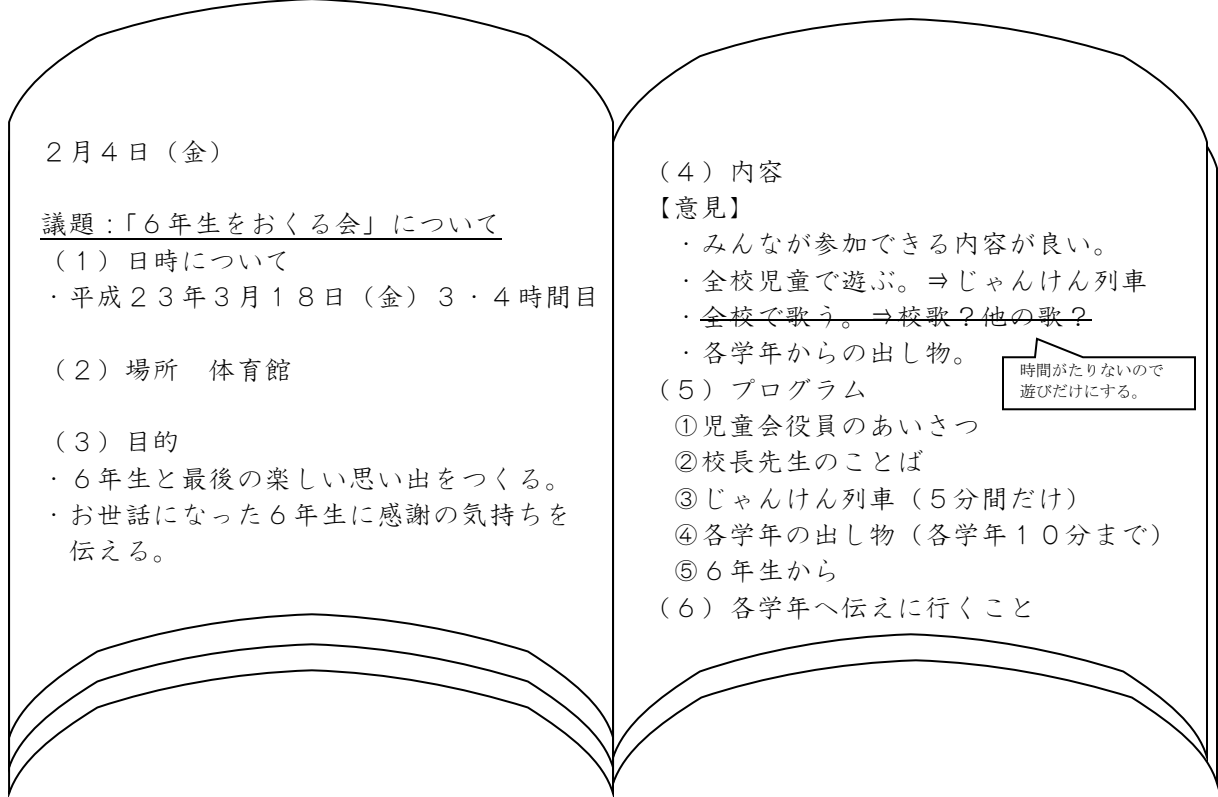 2月4日（金）
議題：「6年生をおくる会」について
（1）日時について
・平成23年3月18日（金）3・4時間目
（2）場所　体育館
（3）目的
・6年生と最後の楽しい思い出をつくる。
・お世話になった6年生に感謝の気持ちを
伝える。
（4）内容
【意見】
・みんなが参加できる内容が良い。
・全校児童で遊ぶ。⇒じゃんけん列車
・全校で歌う。⇒校歌？他の歌？
・各学年からの出し物。
時間がたりないので
遊びだけにする。
（5）プログラム
①児童会役員のあいさつ
②校長先生のことば
③じゃんけん列車（5分間だけ）
④各学年の出し物（各学年10分まで）
⑤6年生から
（6）各学年へ伝えに行くこと